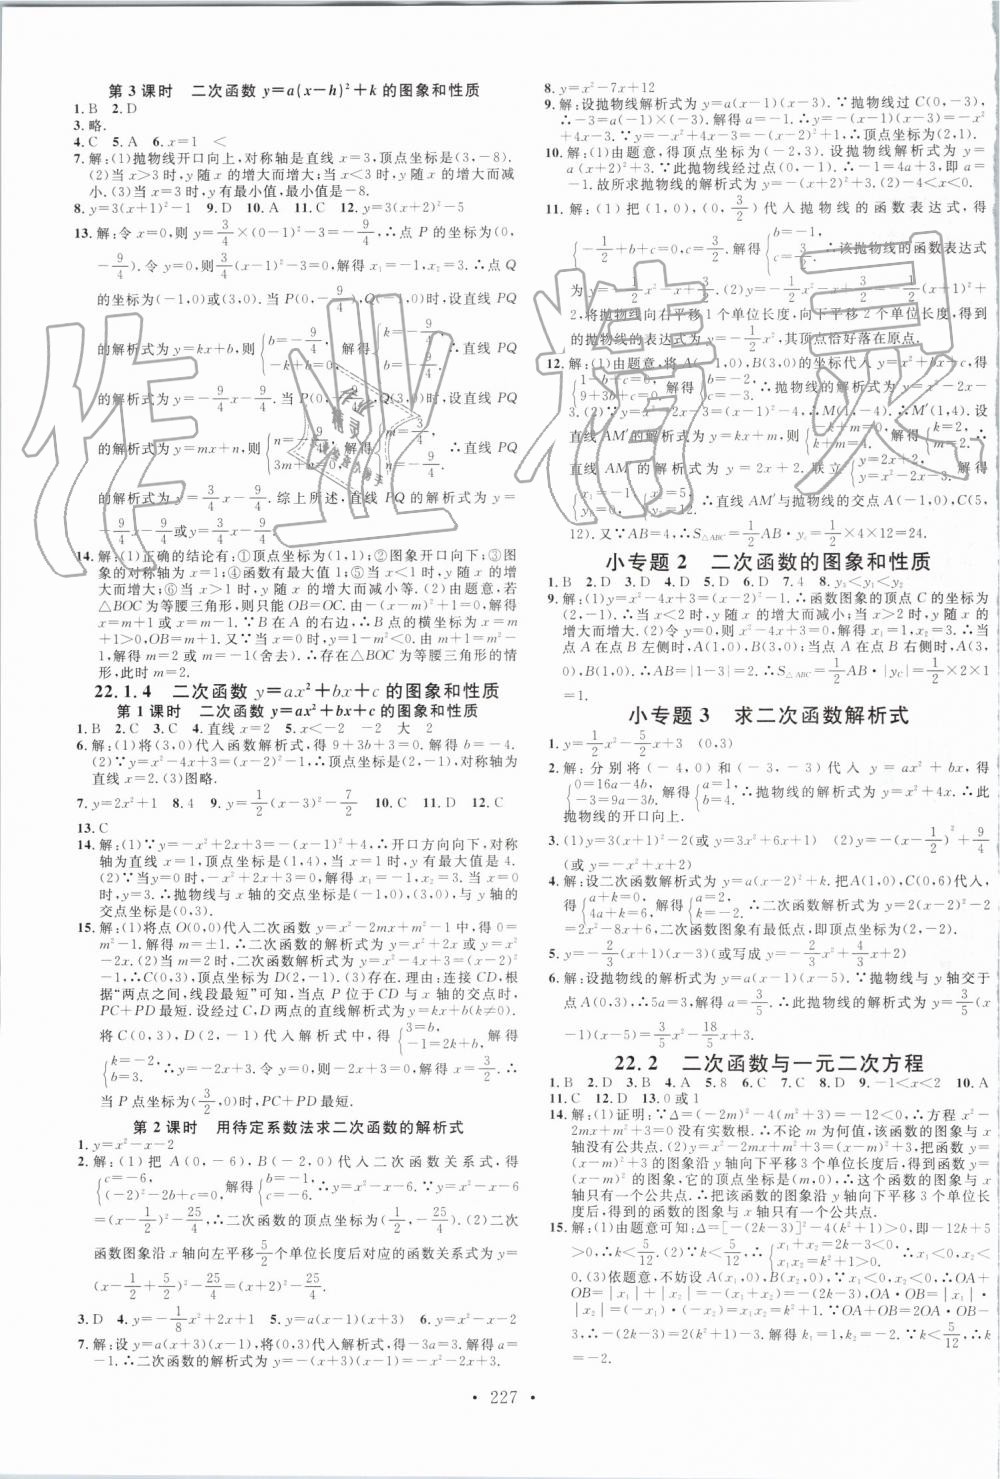 第3课时 二次函数 y=a(x-h)²+k 的图象和性质
1. B 2. D
3. 略.
4. C 5. A 6. x=1 <
7. 解:(1)抛物线开口向上,对称轴是直线 x=3,顶点坐标是(3,-8).
(2)当 x>3 时,y 随 x 的增大而增大;当 x<3 时,y 随 x 的增大而减
小.(3)当 x=3 时,y 有最小值,最小值是-8.
8. y=3(x+1)²-1 9. D 10. A 11. C 12. y=3(x+2)²-5
13. 解:令 x=0,则 y=3/4×(0-1)²-3=-9/4,∴点 P 的坐标为(0,
-9/4).令 y=0,则3/4(x-1)²-3=0,解得 x₁=-1,x₂=3.∴点 Q
的坐标为(-1,0)或(3,0).当 P(0,-9/4),Q(-1,0)时,设直线 PQ
的解析式为 y=kx+b,则{b=-9/4, -k+b=0, 解得{k=-9/4, b=-9/4. ∴直线 PQ
的解析式为 y=-9/4x-9/4.当 P(0,-9/4),Q(3,0)时,设直线 PQ
的解析式为 y=mx+n,则{n=-9/4, 3m+n=0, 解得 ∴直线 PQ
的解析式为 y=3/4x-9/4.综上所述,直线 PQ 的解析式为 y=
-9/4x-9/4或 y=3/4x-9/4.
14. 解:(1)正确的结论有:①顶点坐标为(1,1);②图象开口向下;③图
象的对称轴为 x=1;④函数有最大值 1;⑤当 x<1 时,y 随 x 的增
大而增大;⑥当 x>1 时,y 随 x 的增大而减小.(2)由题意,得若
△BOC 为等腰三角形,则只能 OB=OC.由-(x-m)²+1=0,解得
x=m+1 或 x=m-1.∵B 在 A 的右边,∴B 点的横坐标为 x=m
+1>0,OB=m+1.又∵当 x=0 时,y=1-m²<0.由 m+1=m²-
1,解得 m=2 或 m=-1(舍去).∴存在△BOC 为等腰三角形的情
形,此时 m=2.
22.1.4 二次函数 y=ax²+bx+c 的图象和性质
第1课时 二次函数 y=ax²+bx+c 的图象和性质
1. B 2. C 3. C 4. 直线 x=2 5. x<-2 -2 大 2
6. 解:(1)将(3,0)代入函数解析式,得 9+3b+3=0.解得 b=-4.
(2)∵y=x²-4x+3=(x-2)²-1,∴顶点坐标是(2,-1),对称轴为
直线 x=2.(3)图略.
7. y=2x²+1 8. 4 9. y=1/2(x-3)²-7/2 10. C 11. D 12. C
13. C
14. 解:(1)∵y=-x²+2x+3=-(x-1)²+4,∴开口方向向下,对称
轴为直线 x=1,顶点坐标是(1,4).当 x=1 时,y 有最大值是 4.
(2)∵当 y=0 时,-x²+2x+3=0,解得 x₁=-1,x₂=3.当 x=0
时,y=3,∴抛物线与 x 轴的交点坐标是(-1,0),(3,0),与 y 轴的
交点坐标是(0,3).
15. 解:(1)将点 O(0,0)代入二次函数 y=x²-2mx+m²-1 中,得 0=
m²-1.解得 m=±1.∴二次函数的解析式为 y=x²+2x 或 y=x²
-2x.(2)当 m=2 时,二次函数的解析式为 y=x²-4x+3=(x-
2)²-1,∴C(0,3),顶点坐标为 D(2,-1).(3)存在.理由:连接 CD,
根据“两点之间,线段最短”可知,当点 P 位于 CD 与 x 轴的交点时,
PC+PD 最短.设经过 C,D 两点的直线解析式为 y=kx+b(k≠0).
将 C(0,3),D(2,-1)代入解析式中,得{3=b, -1=2k+b, 解得
{k=-2, b=3. ∴y=-2x+3.令 y=0,可得-2x+3=0,解得 x=3/2.∴
当 P 点坐标为(3/2,0)时,PC+PD 最短.
第2课时 用待定系数法求二次函数的解析式
1. y=x²-x-2
2. 解:(1)把 A(0,-6),B(-2,0)代入二次函数关系式,得
{c=-6, (-2)²-2b+c=0, 解得{b=-1, c=-6. ∴y=x²-x-6.∴y=
(x-1/2)²-25/4,∴二次函数的顶点坐标为(1/2,-25/4).(2)二次
函数图象沿 x 轴向左平移5/2个单位长度后对应的函数关系式为 y=
(x-1/2+5/2)²-25/4=(x+2)²-25/4.
3. D 4. y=-1/8x²+2x+1 5. y=a(x-1)(x+3) 6. y=x²-x-2
7. 解:设 y=a(x+3)(x-1),将(0,3)代入解析式,得-3a=3.解得 a=
-1.∴二次函数的解析式为 y=-(x+3)(x-1)=-x²-2x+3.
8. y=x²-7x+12
9. 解:设抛物线解析式为 y=a(x-1)(x-3).∵抛物线过 C(0,-3),
∴-3=a(-1)×(-3).解得 a=-1.∴y=-(x-1)(x-3)=-x²
+4x-3.(2)∵y=-x²+4x-3=-(x-2)²+1,∴顶点坐标为(2,1).
10. 解:(1)由题意,得顶点坐标为(-2,3).设抛物线的解析式为 y=
a(x+2)²+3,∵抛物线经过点(0,-1),∴-1=4a+3,即 a=
-1.故所求抛物线为 y=-(x+2)²+3.(2)-4<x<0.
11. 解:(1)把(1,0),(0,3/2)代入抛物线的函数表达式,得
{-1/2+b+c=0, c=3/2, 解得{b=-1, c=3/2. ∴该抛物线的函数表达式
为 y=-1/2x²-x+3/2.(2)∵y=-1/2x²-x+3/2=-1/2(x+1)²+
2,将抛物线向右平移1个单位长度,向下平移2个单位长度,得到
的抛物线的表达式为 y=-1/2x²,其顶点恰好落在原点.
12. 解:(1)由题意,将 A(-1,0),B(3,0)的坐标代入 y=x²+bx+c,得
{1-b+c=0, 9+3b+c=0. 解得{b=-2, c=-3. ∴抛物线的解析式为 y=x²-2x-
3.(2)∵y=x²-2x-3=(x-1)²-4,∴M(1,-4).∴M′(1,4).设
直线 AM′的解析式为 y=kx+m,则{-k+m=0, k+m=4. 解得{k=2, m=2. ∴
直线 AM′的解析式为 y=2x+2.联立{y=2x+2, y=x²-2x-3. 解得
{x₁=-1, y₁=0, {x₂=5, y₂=12. ∴直线 AM′与抛物线的交点 A(-1,0),C(5,
12).又∵AB=4,∴S△ABC=1/2AB·y꜀=1/2×4×12=24.
小专题2 二次函数的图象和性质
1. B 2. D 3. D 4. D 5. D 6. D 7. 4 8. y₃<y₁<y₂
9. 解:(1)y=x²-4x+3=(x-2)²-1,∴函数图象的顶点 C 的坐标为
(2,-1),∴当 x<2 时,y 随 x 的增大而减小;当 x>2 时,y 随 x 的
增大而增大.(2)令 y=0,则 x²-4x+3=0,解得 x₁=1,x₂=3,∴当
点 A 在点 B 左侧时,A(1,0),B(3,0);当点 A 在点 B 右侧时,A(3,
0),B(1,0).∴AB=|1-3|=2.∴S△ABC=1/2AB·|y꜀|=1/2×2×1
=1.
小专题3 求二次函数解析式
1. y=1/2x²-5/2x+3 (0,3)
2. 解:分别将(-4,0)和(-3,-3)代入 y=ax²+bx,得
{0=16a-4b, -3=9a-3b. 解得{a=1, b=4. ∴抛物线的解析式为 y=x²+4x.∴此
抛物线的开口向上.
3. (1)y=3(x+1)²-2(或 y=3x²+6x+1) (2)y=-(x-1/2)²+9/4
(或 y=-x²+x+2)
4. 解:设二次函数解析式为 y=a(x-2)²+k.把A(1,0),C(0,6)代入,
得{a+k=0, 4a+k=6, 解得{a=2, k=-2. ∴二次函数解析式为 y=2(x-2)²-2
=2x²-8x+6,∴二次函数图象有最低点,即顶点坐标为(2,-2).
5. y=-2/3(x+1)(x-3)(或写成 y=-2/3x²+4/3x+2)
6. 解:设抛物线的解析式为 y=a(x-1)(x-5).∵抛物线与 y 轴交于
点 A(0,3),∴5a=3,解得 a=3/5.∴此抛物线的解析式为 y=3/5(x
-1)(x-5)=3/5x²-18/5x+3.
22.2 二次函数与一元二次方程
1. B 2. D 3. B 4. A 5. 8 6. C 7. C 8. D 9. -1<x<2 10. A
11. C 12. D 13. 0 或 1
14. 解:(1)证明:∵Δ=(-2m)²-4(m²+3)=-12<0,∴方程 x²-
2mx+m²+3=0 没有实数根.∴不论 m 为何值,该函数的图象与 x
轴没有公共点.(2)y=x²-2mx+m²+3=(x-m)²+3,把函数 y=
(x-m)²+3 的图象沿 y 轴向下平移3个单位长度后,得到函数 y=
(x-m)² 的图象,它的顶点坐标是(m,0),∴这个函数的图象与 x
轴只有一个公共点.∴把该函数的图象沿 y 轴向下平移3个单位长
度后,得到的函数的图象与 x 轴只有一个公共点.
15. 解:(1)由题意可知:Δ=[-(2k-3)]²-4(k²+1)>0,即-12k+5
>0,∴k<5/12.(2)∵k<5/12,∴{x₁+x₂=2k-3<0, x₁x₂=k²+1>0. ∴x₁<0,x₂<
0.(3)依题意,不妨设 A(x₁,0),B(x₂,0).∵x₁<0,x₂<0,∴OA+
OB=|x₁|+|x₂|=-(x₁+x₂)=-(2k-3),OA·OB=|x₁|·
|x₂|=x₁x₂=k²+1.∵OA+OB=2OA·OB-
3,∴-(2k-3)=2(k²+1)-3.解得 k₁=1,k₂=-2.∵k<5/12,∴k
=-2.
• 227 •
作业精灵